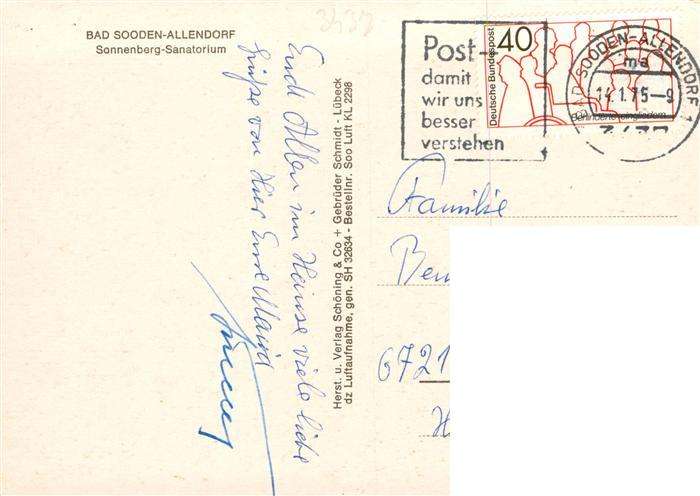 BAD SOODEN-ALLENDORF
Sonnenberg-Sanatorium
Euch Allen im Hause viele liebe
Grüße von hier Eure
Herst. u. Verlag Schöning & Co + Gebrüder Schmidt - Lübeck
dz Luftaufnahme, gen. SH 32634 - Bestellnr. Soo Luft KL 2298
Post-
damit
wir uns
besser
verstehen
Deutsche Bundespost
40
Behinderte eingliedern
BAD SOODEN-ALLENDORF 1
ma
14.1.75-9
Familie
6721